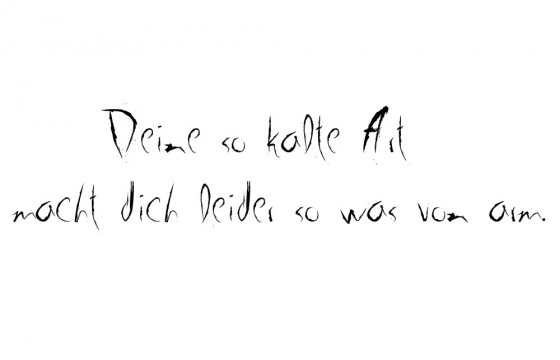 Deine so kalte Art
macht dich leider so was von arm.